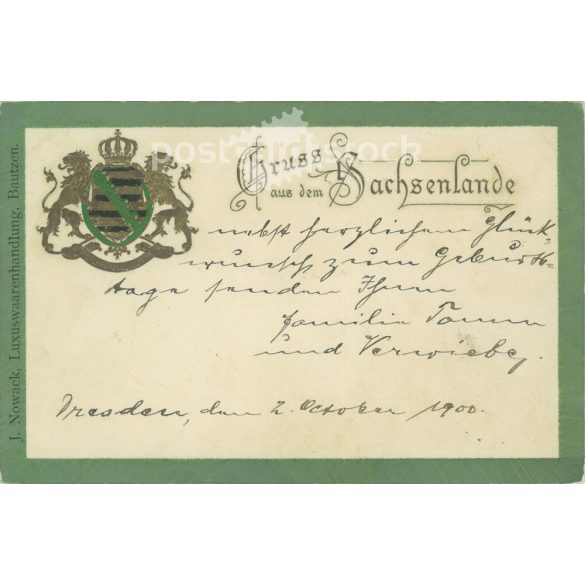 postcardstock
Gruss
aus dem Sachsenlande
nebst herzlichem Glück-
wunsch zum Geburts-
tage senden Ihnen
Familie
und
Dresden, den 2. October 1900.
J. Nowack, Luxuswaarenhandlung, Bautzen.